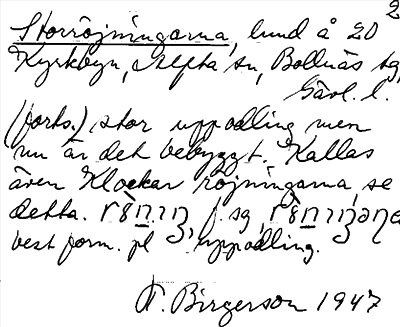 2
Storröjningarna, lund å 20
Kyrkbyn, Alfta sn, Bollnäs tg,
Gävl. l.
(forts.) stor uppodling men
nu är det bebyggt. Kallas
även Klockarröjningarna, se
detta. f. sg.
best form. pl uppodling.
F. Birgerson 1947